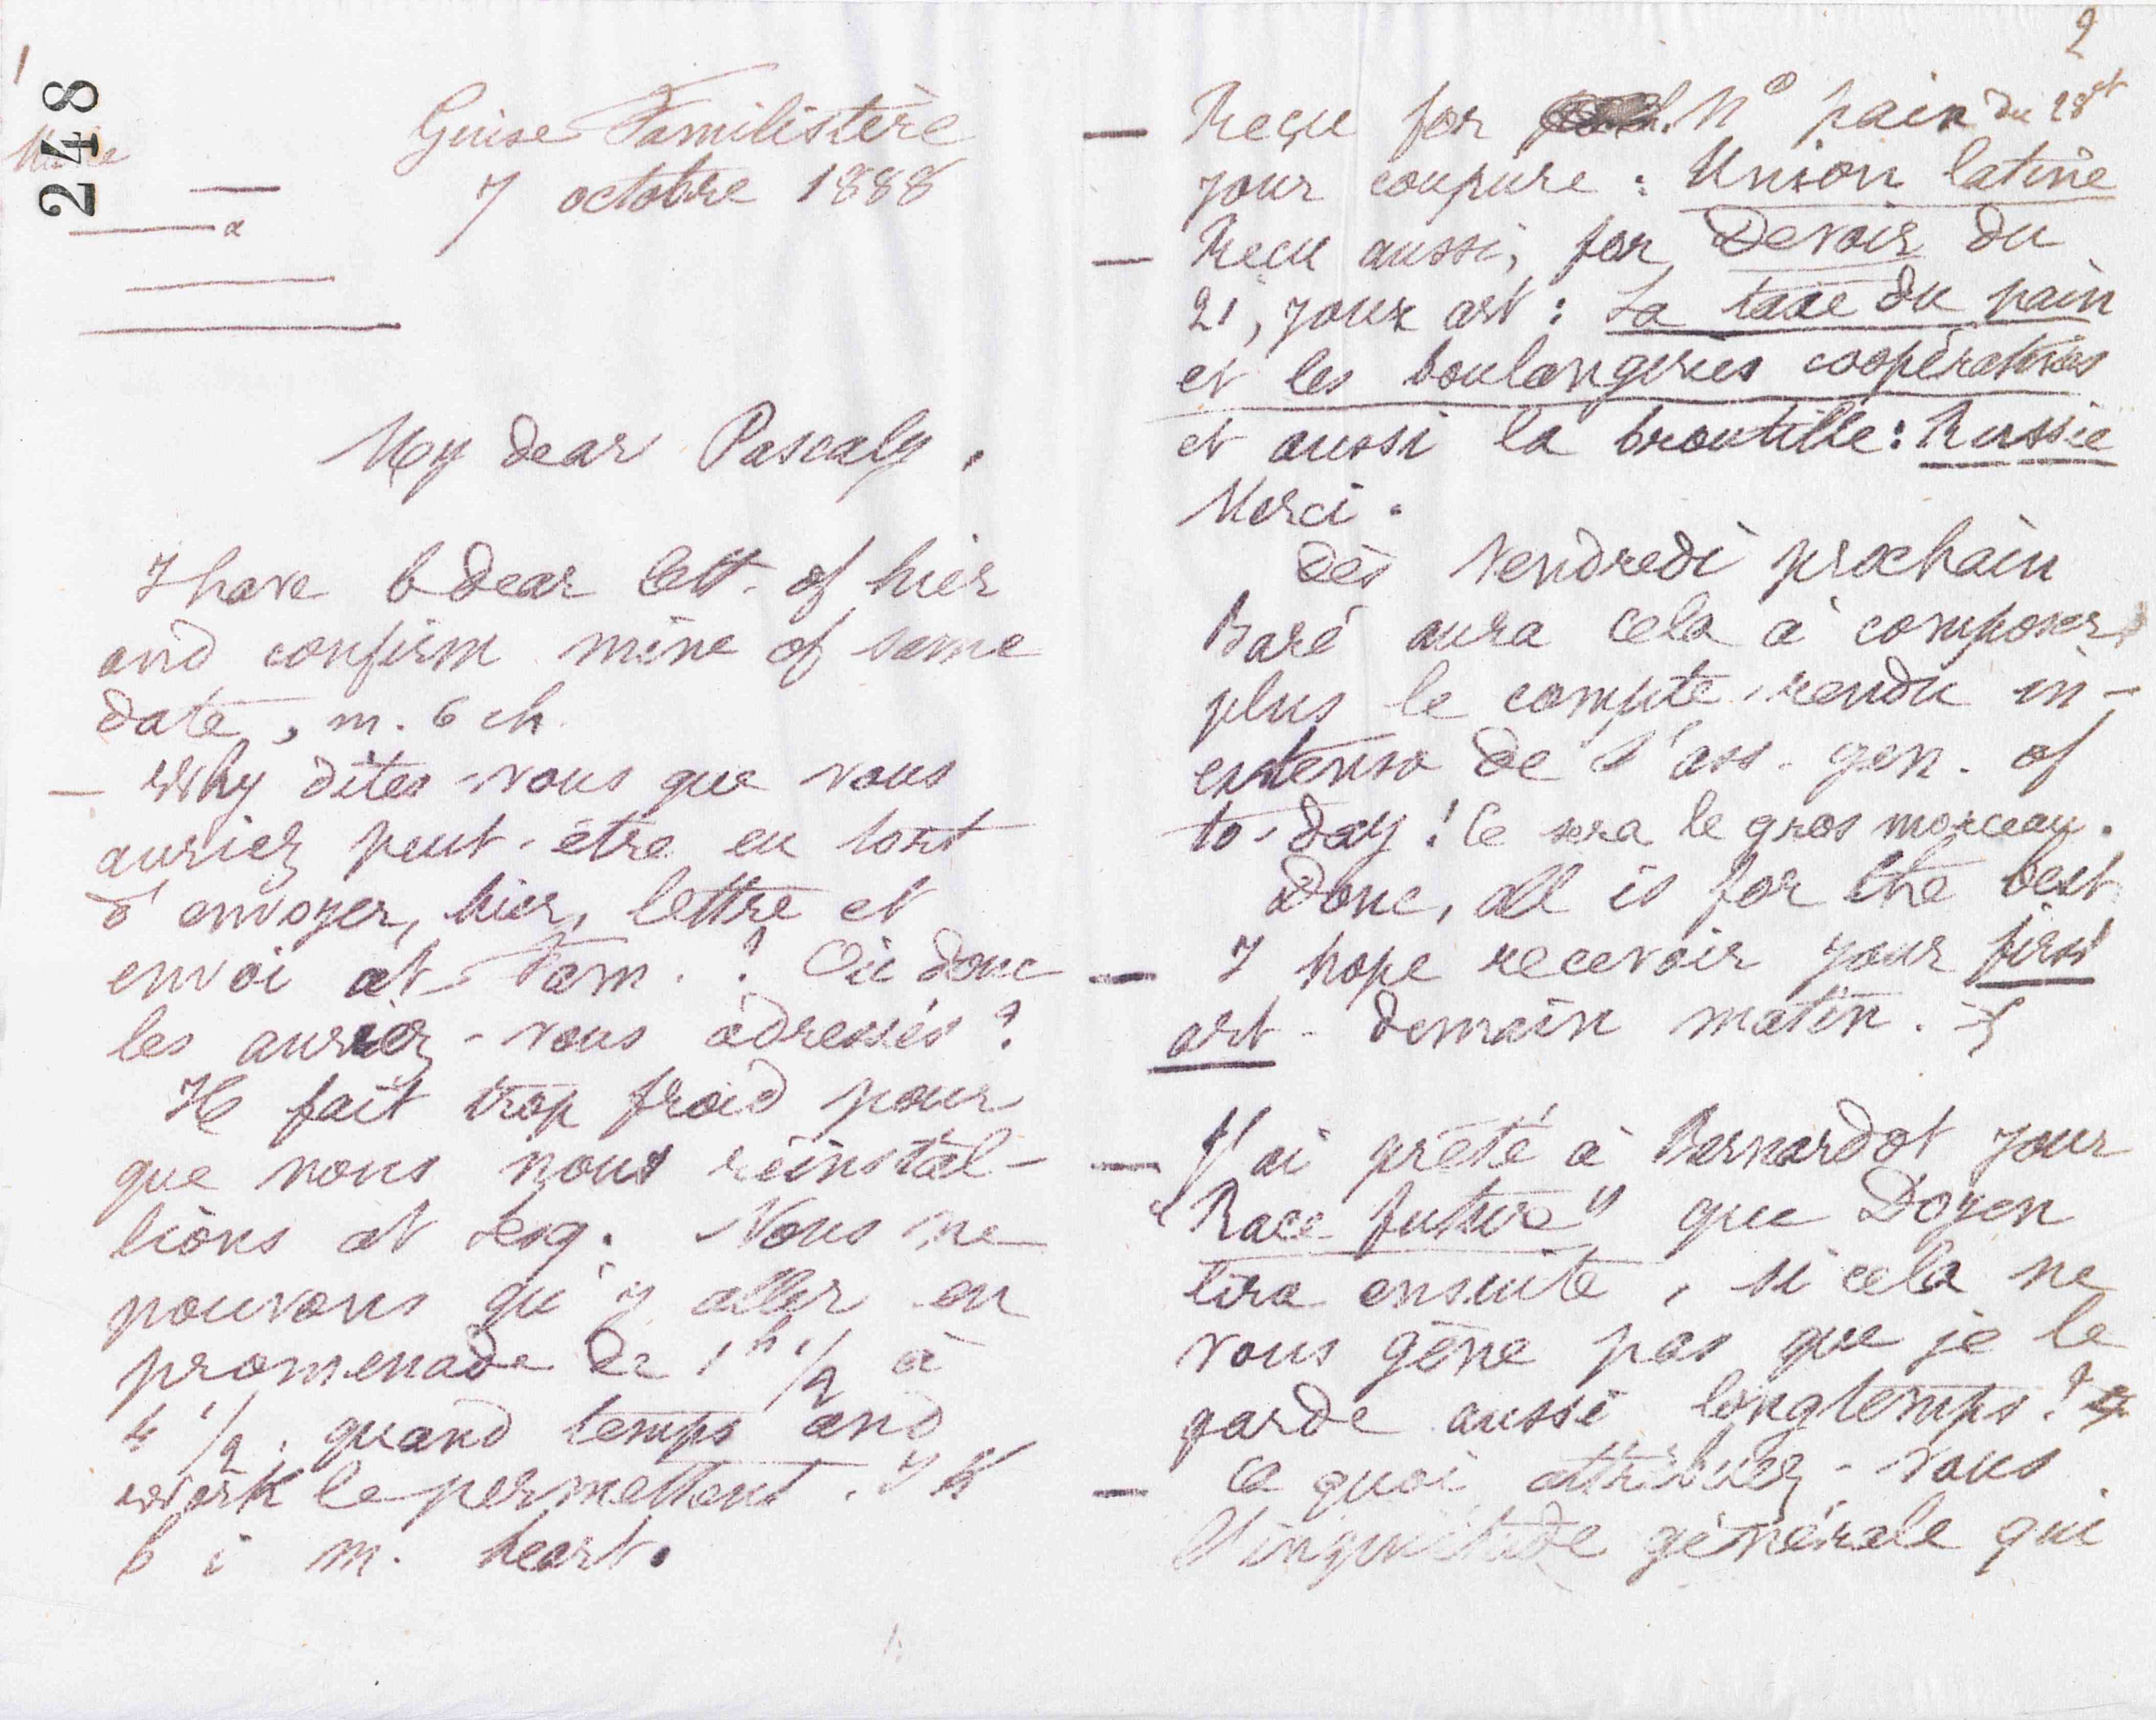 1
248
Guise Familistère
7 octobre 1888
a
My dear Pascaly.
I have b dear lett. of hier
and confirm mine of same
date, m. 6 ch
— Why dites-vous que vous
auriez peut-être eu tort
d'envoyer, hier, lettre et
envoi at Fam. ? Où donc
les auriez-vous adressés ?
Il fait trop froid pour
que nous nous réinstal-
lions at Lesq. Nous ne
pouvons qu'y aller en
promenade de 1h 1/2 à
4 1/2, quand temps and
work le permettent. I k
b i m. heart.
2
— Reçu for N° pain du 28 8t
your coupure : Union latine
— Reçu aussi, for Devoir du
21, your art : La taxe du pain
et les boulangeries coopératives
et aussi la broutille : Russie
Merci.
Dès vendredi prochain
Baré aura cela à composer,
plus le compte-rendu in-
extenso de l'ass. gen. of
to-day ! Ce sera le gros morceau.
Donc, all is for the best
— I hope recevoir your first
art. demain matin.
— J'ai prêté à Bernardot your
"Race future" que Doyen
lira ensuite, si cela ne
vous gêne pas que je le
garde aussi longtemps ?
— à quoi attribuez-vous
l'inquiétude générale qui